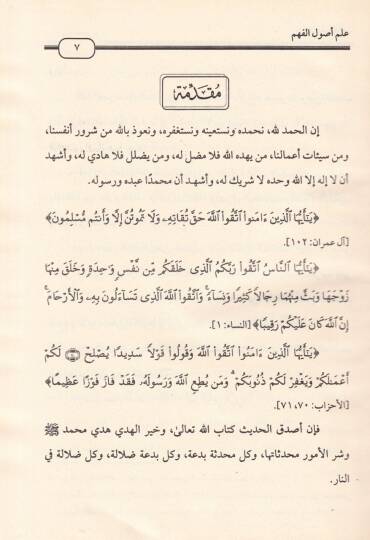 علم أصول الفهم
٧
مقدمة
إن الحمد لله، نحمده ونستعينه ونستغفره، ونعوذ بالله من شرور أنفسنا،
ومن سيئات أعمالنا، من يهده الله فلا مضل له، ومن يضلل فلا هادي له، وأشهد
أن لا إله إلا الله وحده لا شريك له، وأشهد أن محمدًا عبده ورسوله.
﴿يَٰٓأَيُّهَا ٱلَّذِينَ ءَامَنُوا۟ ٱتَّقُوا۟ ٱللَّهَ حَقَّ تُقَاتِهِۦ وَلَا تَمُوتُنَّ إِلَّا وَأَنتُم مُّسْلِمُونَ﴾
[آل عمران: ١٠٢].
﴿يَٰٓأَيُّهَا ٱلنَّاسُ ٱتَّقُوا۟ رَبَّكُمُ ٱلَّذِى خَلَقَكُم مِّن نَّفْسٍ وَٰحِدَةٍ وَخَلَقَ مِنْهَا
زَوْجَهَا وَبَثَّ مِنْهُمَا رِجَالًا كَثِيرًا وَنِسَآءً ۚ وَٱتَّقُوا۟ ٱللَّهَ ٱلَّذِى تَسَآءَلُونَ بِهِۦ وَٱلْأَرْحَامَ ۚ
إِنَّ ٱللَّهَ كَانَ عَلَيْكُمْ رَقِيبًا﴾ [النساء: ١].
﴿يَٰٓأَيُّهَا ٱلَّذِينَ ءَامَنُوا۟ ٱتَّقُوا۟ ٱللَّهَ وَقُولُوا۟ قَوْلًا سَدِيدًا يُصْلِحْ لَكُمْ
أَعْمَٰلَكُمْ وَيَغْفِرْ لَكُمْ ذُنُوبَكُمْ ۗ وَمَن يُطِعِ ٱللَّهَ وَرَسُولَهُۥ فَقَدْ فَازَ فَوْزًا عَظِيمًا﴾
[الأحزاب: ٧٠، ٧١].
فإن أصدق الحديث كتاب الله تعالى، وخير الهدي هدي محمد ﷺ
وشر الأمور محدثاتها، وكل محدثة بدعة، وكل بدعة ضلالة، وكل ضلالة في
النار.